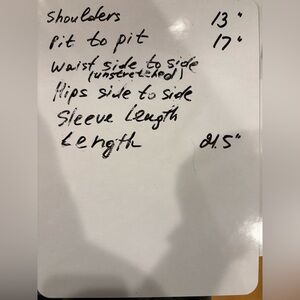 Shoulders 13"
Pit to pit 17"
Waist side to side
(unstretched)
Hips side to side
Sleeve Length
Length 21.5"